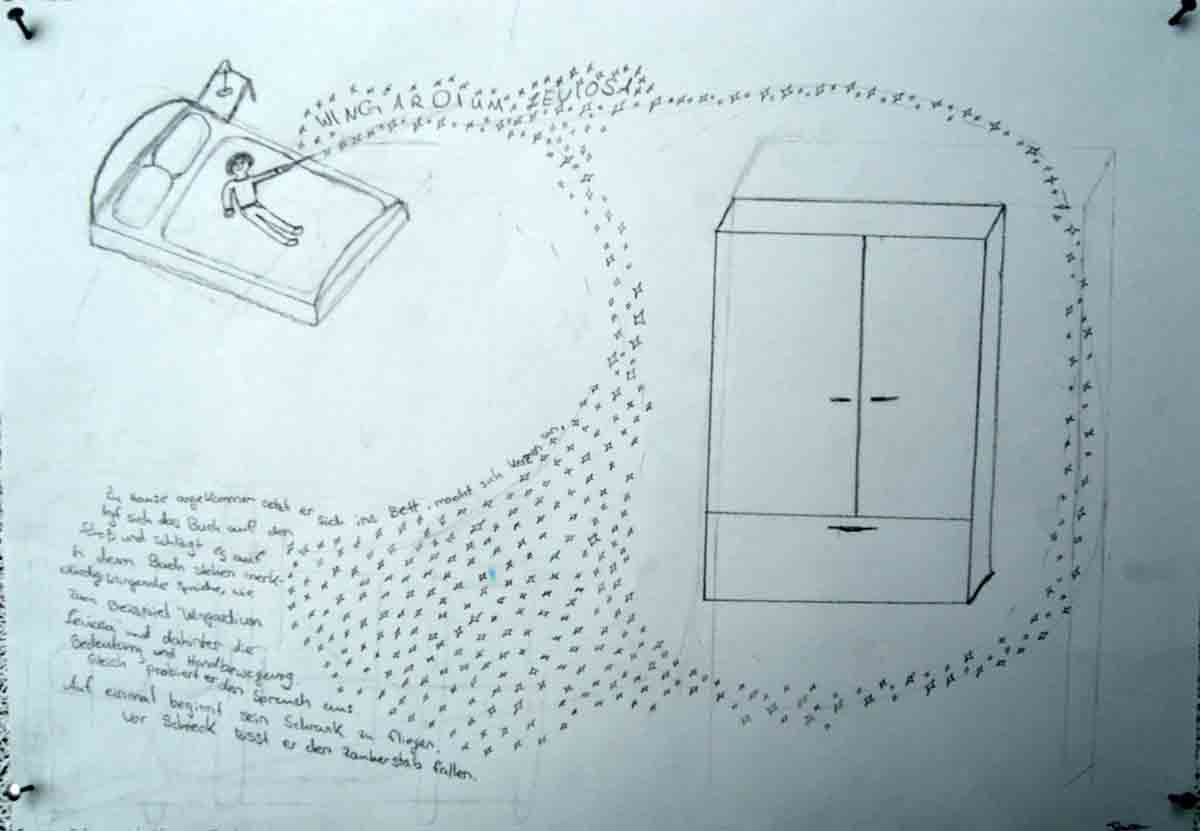 WINGARDIUM LEVIOSA
Zu Hause angekommen setzt er sich ins Bett, macht sich
legt sich das Buch auf den
Schoß und schlägt es auf
In dem Buch stehen merk-
würdig klingende Sprüche, wie
zum Beispiel Wingardium
Leviosa und dahinter die
Bedeutung und Handbewegung
Gleich probiert er den Spruch aus
Auf einmal beginnt sein Schrank zu fliegen.
Vor Schreck lässt er den Zauberstab fallen.